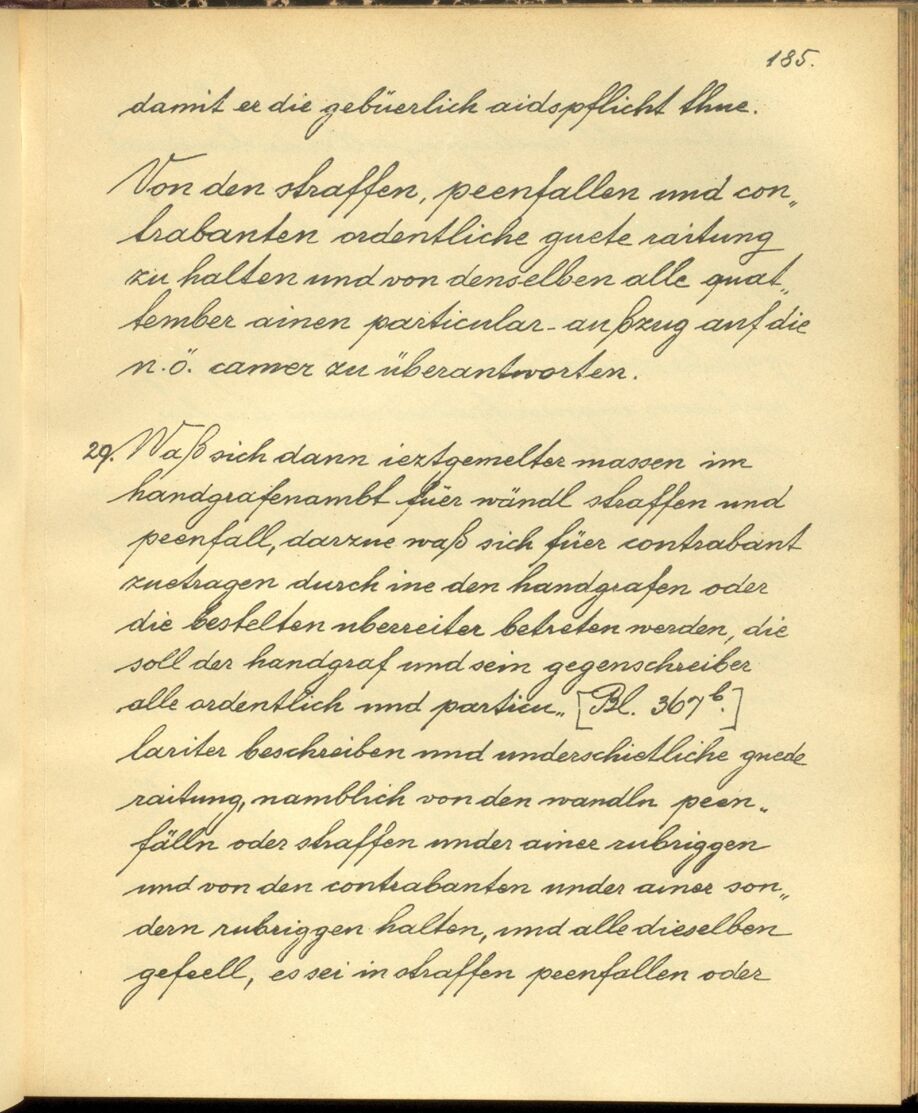 185.
damit er die gebüerlich aidspflicht thue.
Von den straffen, peenfallen und con„
trabanten ordentliche guete raitung
zu halten und von denselben alle quat„
tember ainen particular-außzug auf die
n.ö. camer zu überantworten.
29. Waß sich dann ieztgemelter massen im
handgrafenambt füer wändl straffen und
peenfall, darzue waß sich füer contrabant
zuetragen durch ine den handgrafen oder
die bestelten uberreiter betreten werden, die
soll der handgraf und sein gegenschreiber
alle ordentlich und particu„ [Bl. 367b.]
lariter beschreiben und underschietliche guede
raitung, namblich von den wandln peen„
fälln oder straffen under ainer rubriggen
und von den contrabanten under ainer son„
dern rubriggen halten, und alle dieselben
gefeell, es sei in straffen peenfallen oder